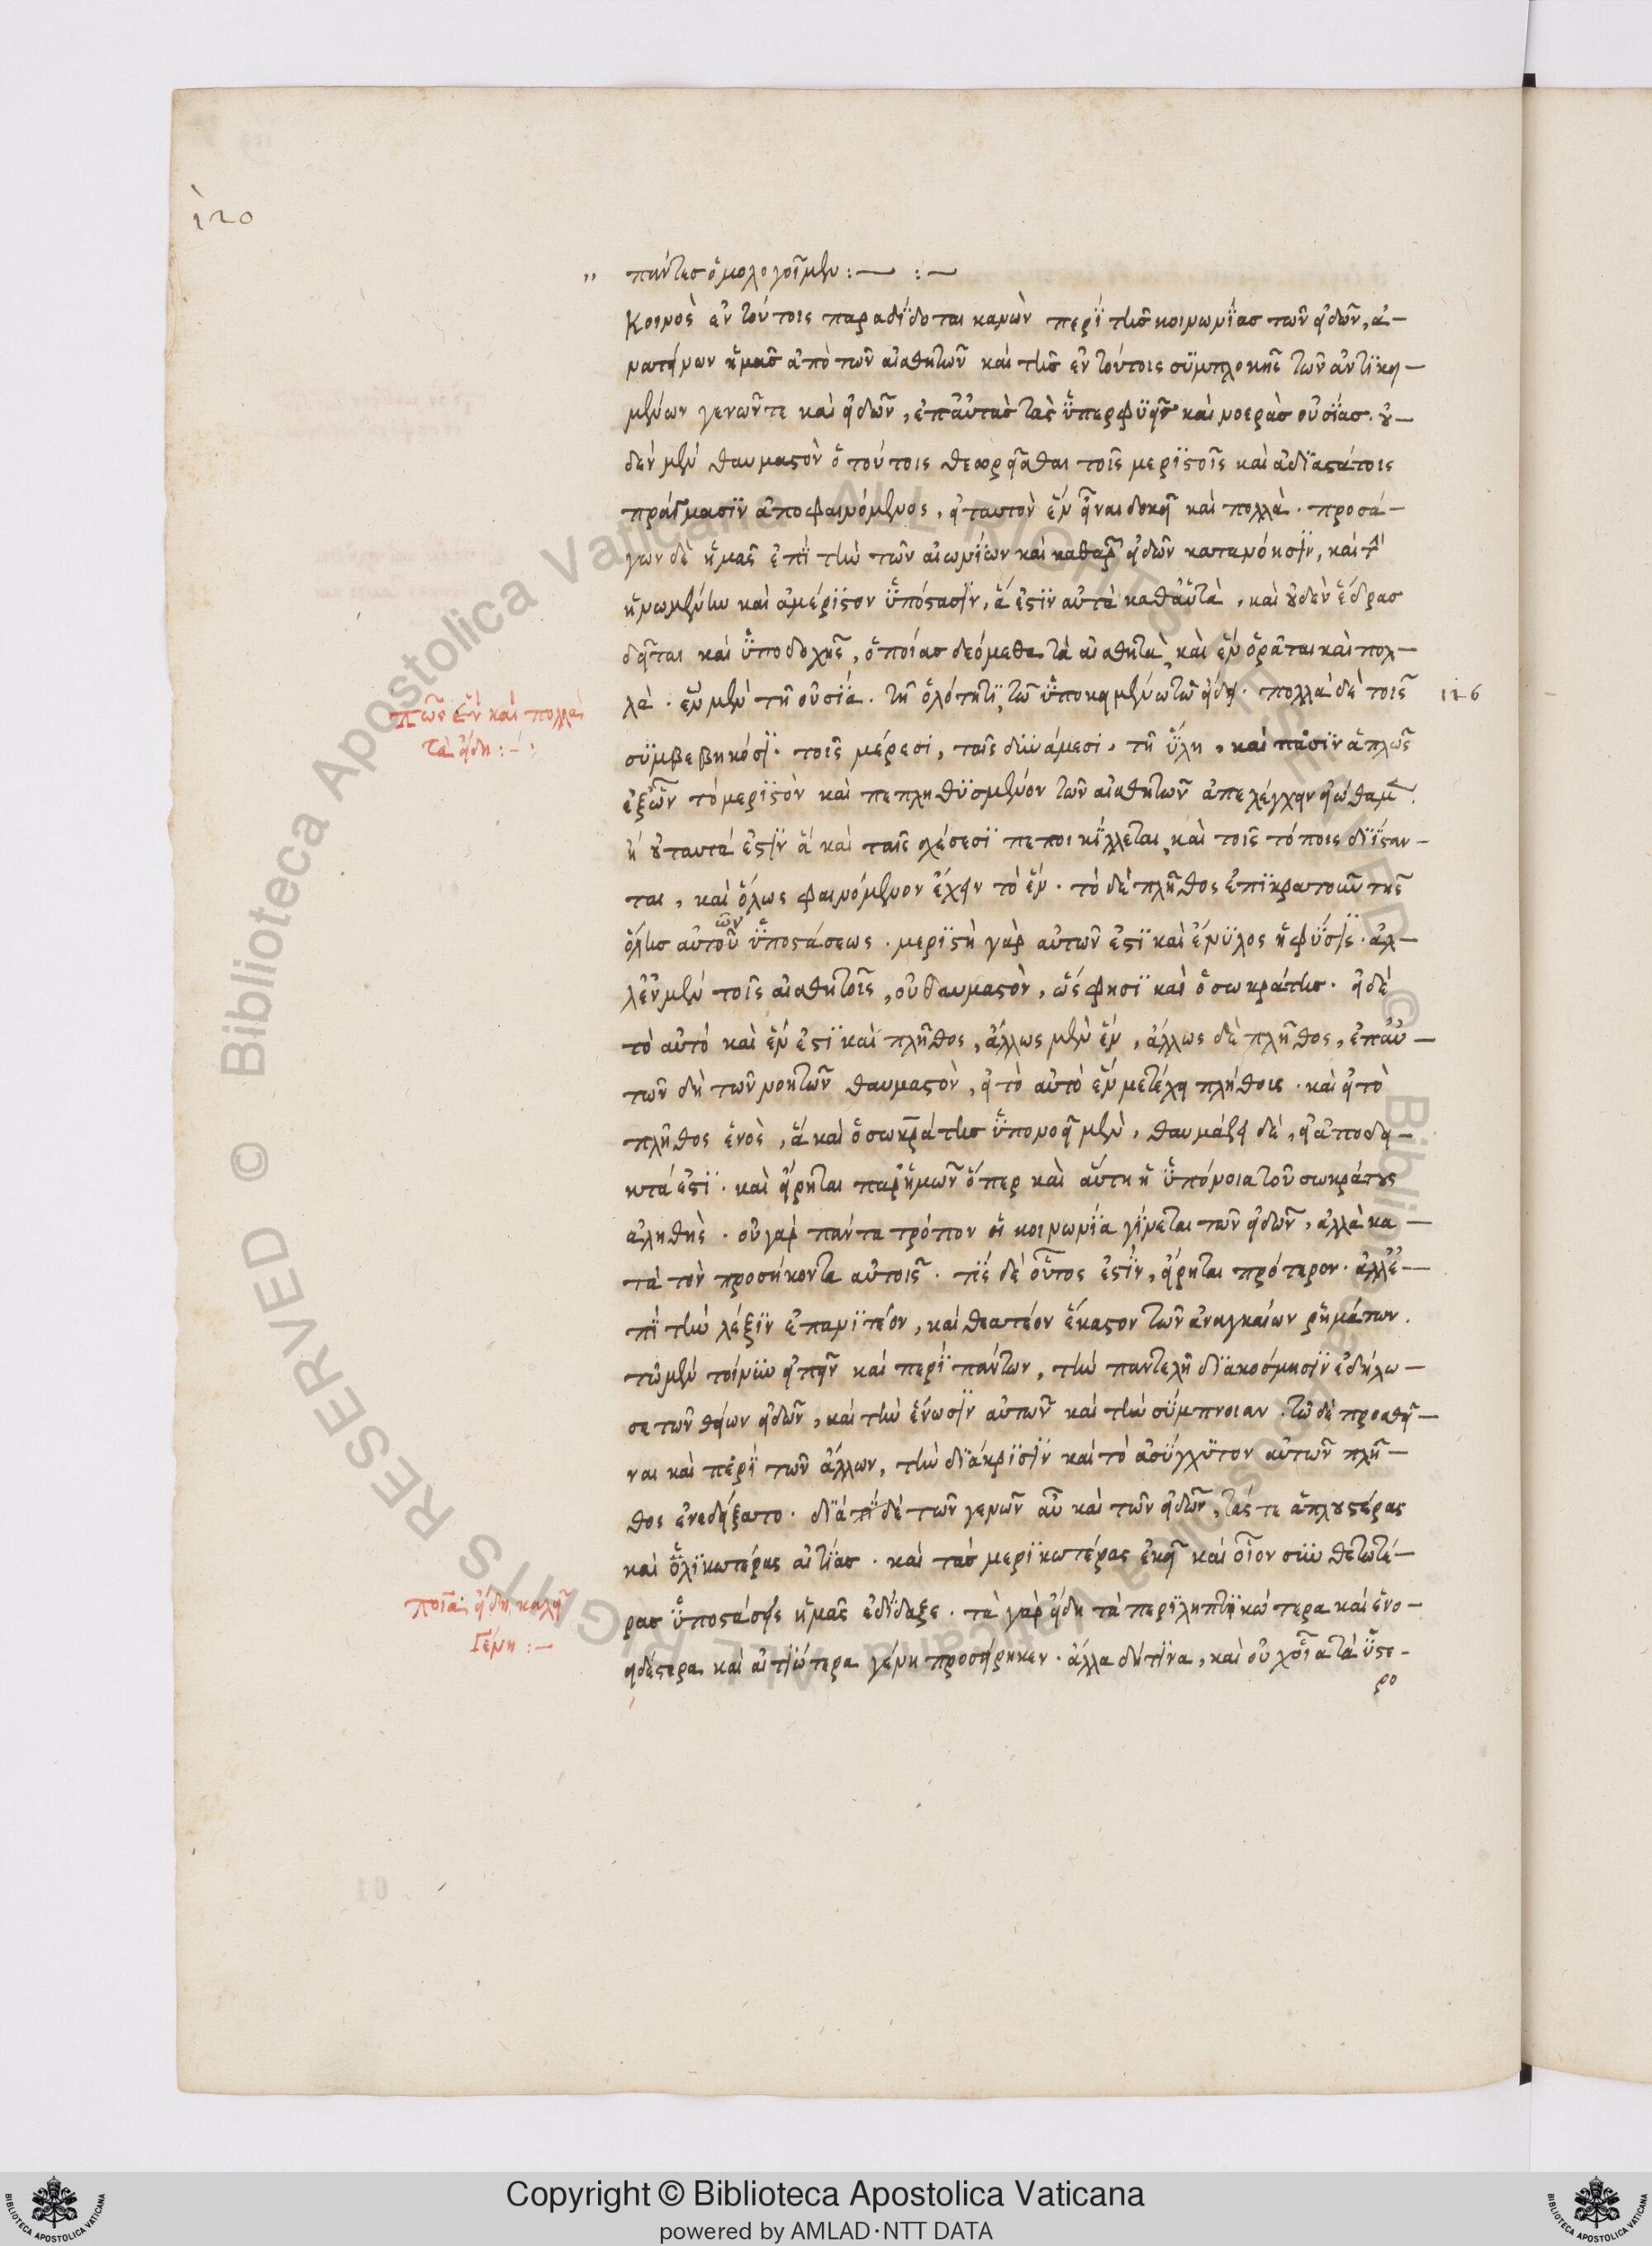 120
πάντες ὁμολογοῖμεν :— :—
Κοινὸς ἐν τούτοις παραδίδοται κανὼν περὶ τῆς κοινωνίας τῶν εἰδῶν, ἀ-
νατείνων ἡμᾶς ἀπὸ τῶν αἰσθητῶν καὶ τῆς ἐν τούτοις συμπλοκῆς τῶν ἀντικει-
μένων γενῶν τε καὶ εἰδῶν, ἐπ' αὐτὰς τὰς ὑπερφυεῖς καὶ νοερὰς οὐσίας. οὐ-
δὲν μὲν θαυμαστὸν ὃ τούτοις θεωρεῖσθαι τοῖς μεριστοῖς καὶ ἀδιαστάτοις
πράγμασιν ἀποφαινόμενος, εἰ ταυτὸν ἓν εἶναι δοκεῖ καὶ πολλὰ. προσά-
γων δὲ ἡμᾶς ἐπὶ τὴν τῶν αἰωνίων καὶ καθαρῶν εἰδῶν κατανόησιν, καὶ τὴν
ἡνωμένην καὶ ἀμέριστον ὑπόστασιν, ἅ ἐστιν αὐτὰ καθ' αὑτὰ, καὶ οὐδὲν ἕδρας
δεῖται καὶ ὑποδοχῆς, ὁποίας δεόμεθα τὰ αἰσθητὰ, καὶ ἓν ὁρᾶται καὶ πολ-
λὰ. ἓν μὲν τῇ οὐσίᾳ. τῇ ὁλότητι, τῷ ὑποκειμένῳ τῷ εἴδει. πολλὰ δὲ τοῖς
126
πῶς ἓν καὶ πολλὰ
τὰ εἴδη :-:
συμβεβηκόσι. τοῖς μέρεσι, ταῖς δυνάμεσι, τῇ ὕλῃ, καὶ πᾶσιν ἁπλῶς
ἐξ ὧν τὸ μεριστὸν καὶ πεπληθυσμένον τῶν αἰσθητῶν ἀπελέγχειν εἰώθαμεν.
ἢ οὐ ταυτά ἐστιν ἃ καὶ ταῖς σχέσεσι πεποικίλλεται, καὶ τοῖς τόποις διίσταν-
ται, καὶ ὅλως φαινόμενον ἔχειν τὸ ἕν. τὸ δὲ πλῆθος ἐπικρατοῦν τῆς
ὅλης αὐτοῦ ὑποστάσεως. μεριστὴ γὰρ αὐτῶν ἐστι καὶ ἔνυλος ἡ φύσις. ἀλ-
ῶν
λ' ἐν μὲν τοῖς αἰσθητοῖς, οὐ θαυμαστὸν, ὥς φησι καὶ ὁ σωκράτης. εἰ δὲ
τὸ αὐτό καὶ ἕν ἐστι καὶ πλῆθος, ἄλλως μὲν ἕν, ἄλλως δὲ πλῆθος, ἐπ' αὐ-
τῶν δὴ τῶν νοητῶν θαυμαστὸν, εἰ τὸ αὐτὸ ἓν μετέχει πλήθοις. καὶ εἰ τὸ
πλῆθος ἑνὸς, ἃ καὶ ὁ σωκράτης ὑπονοεῖ μὲν, θαυμάζει δὲ, εἰ ἀποδει-
κτά ἐστι. καὶ εἴρηται παρ' ἡμῶν ὅπερ καὶ αὕτη ἡ ὑπόνοια τοῦ σωκράτους
ἀληθής. οὐ γὰρ πάντα τρόπον ἡ κοινωνία γίνεται τῶν εἰδῶν, ἀλλὰ κα-
τὰ τὸν προσήκοντα αὐτοῖς. τίς δὲ οὗτος ἐστίν, εἴρηται πρότερον. ἀλλ' ἐ-
πὶ τὴν λέξιν ἐπανιτέον, καὶ θεατέον ἕκαστον τῶν ἀναγκαίων ῥημάτων.
τῷ μὲν τοίνυν εἰπεῖν καὶ περὶ πάντων, τὴν παντελῆ διακόσμησιν ἐδήλω-
σε τῶν θείων εἰδῶν, καὶ τὴν ἕνωσιν αὐτῶν καὶ τὴν σύμπνοιαν. τῷ δὲ προσθεῖ-
ναι καὶ περὶ τῶν ἄλλων, τὴν διάκρισιν καὶ τὸ ἀσύγχυτον αὐτῶν πλῆ-
θος ἐνεδείξατο. διά τι δὲ τῶν γενῶν αὖ καὶ τῶν εἰδῶν, τάς τε ἁπλουστέρας
καὶ ὁλικωτέρας αἰτίας. καὶ τὰς μερικωτέρας ἐκεῖ καὶ οἷον συνθετωτέ-
ρας ὑποστάσεις ἡμᾶς ἐδίδαξε. τὰ γὰρ εἴδη τὰ περιληπτικώτερα καὶ ἑνο-
ποῖα εἴδη καλεῖ
Γένη :—
ειδέστερα καὶ αἰτιώτερα γένη προσείρηκεν. ἄλλα δή τινα, καὶ οὐχ οἷα τὰ ὑστε-
ρο
© Biblioteca Apostolica Vaticana ALL RIGHTS RESERVED
© Biblioteca Apostolica Vaticana ALL RIGHTS RESERVED
Copyright © Biblioteca Apostolica Vaticana
powered by AMLAD·NTT DATA
BIBLIOTECA APOSTOLICA VATICANA
BIBLIOTECA APOSTOLICA VATICANA